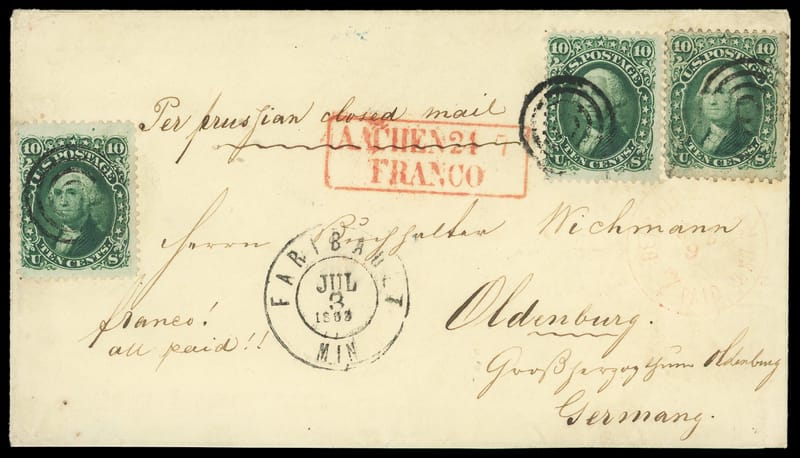 10 10
U.S. POSTAGE
TEN CENTS.
U S
10 10
U.S. POSTAGE
TEN CENTS.
U S
10 10
U.S. POSTAGE
TEN CENTS.
U S
Per prussian closed mail
AACHEN 24 7
FRANCO
Herrn Buchhalter Wichmann
FARIBAULT
JUL
3
1863
MIN
franco!
all paid!!
Oldenburg.
Großherzogthum Oldenburg
Germany.
PAID